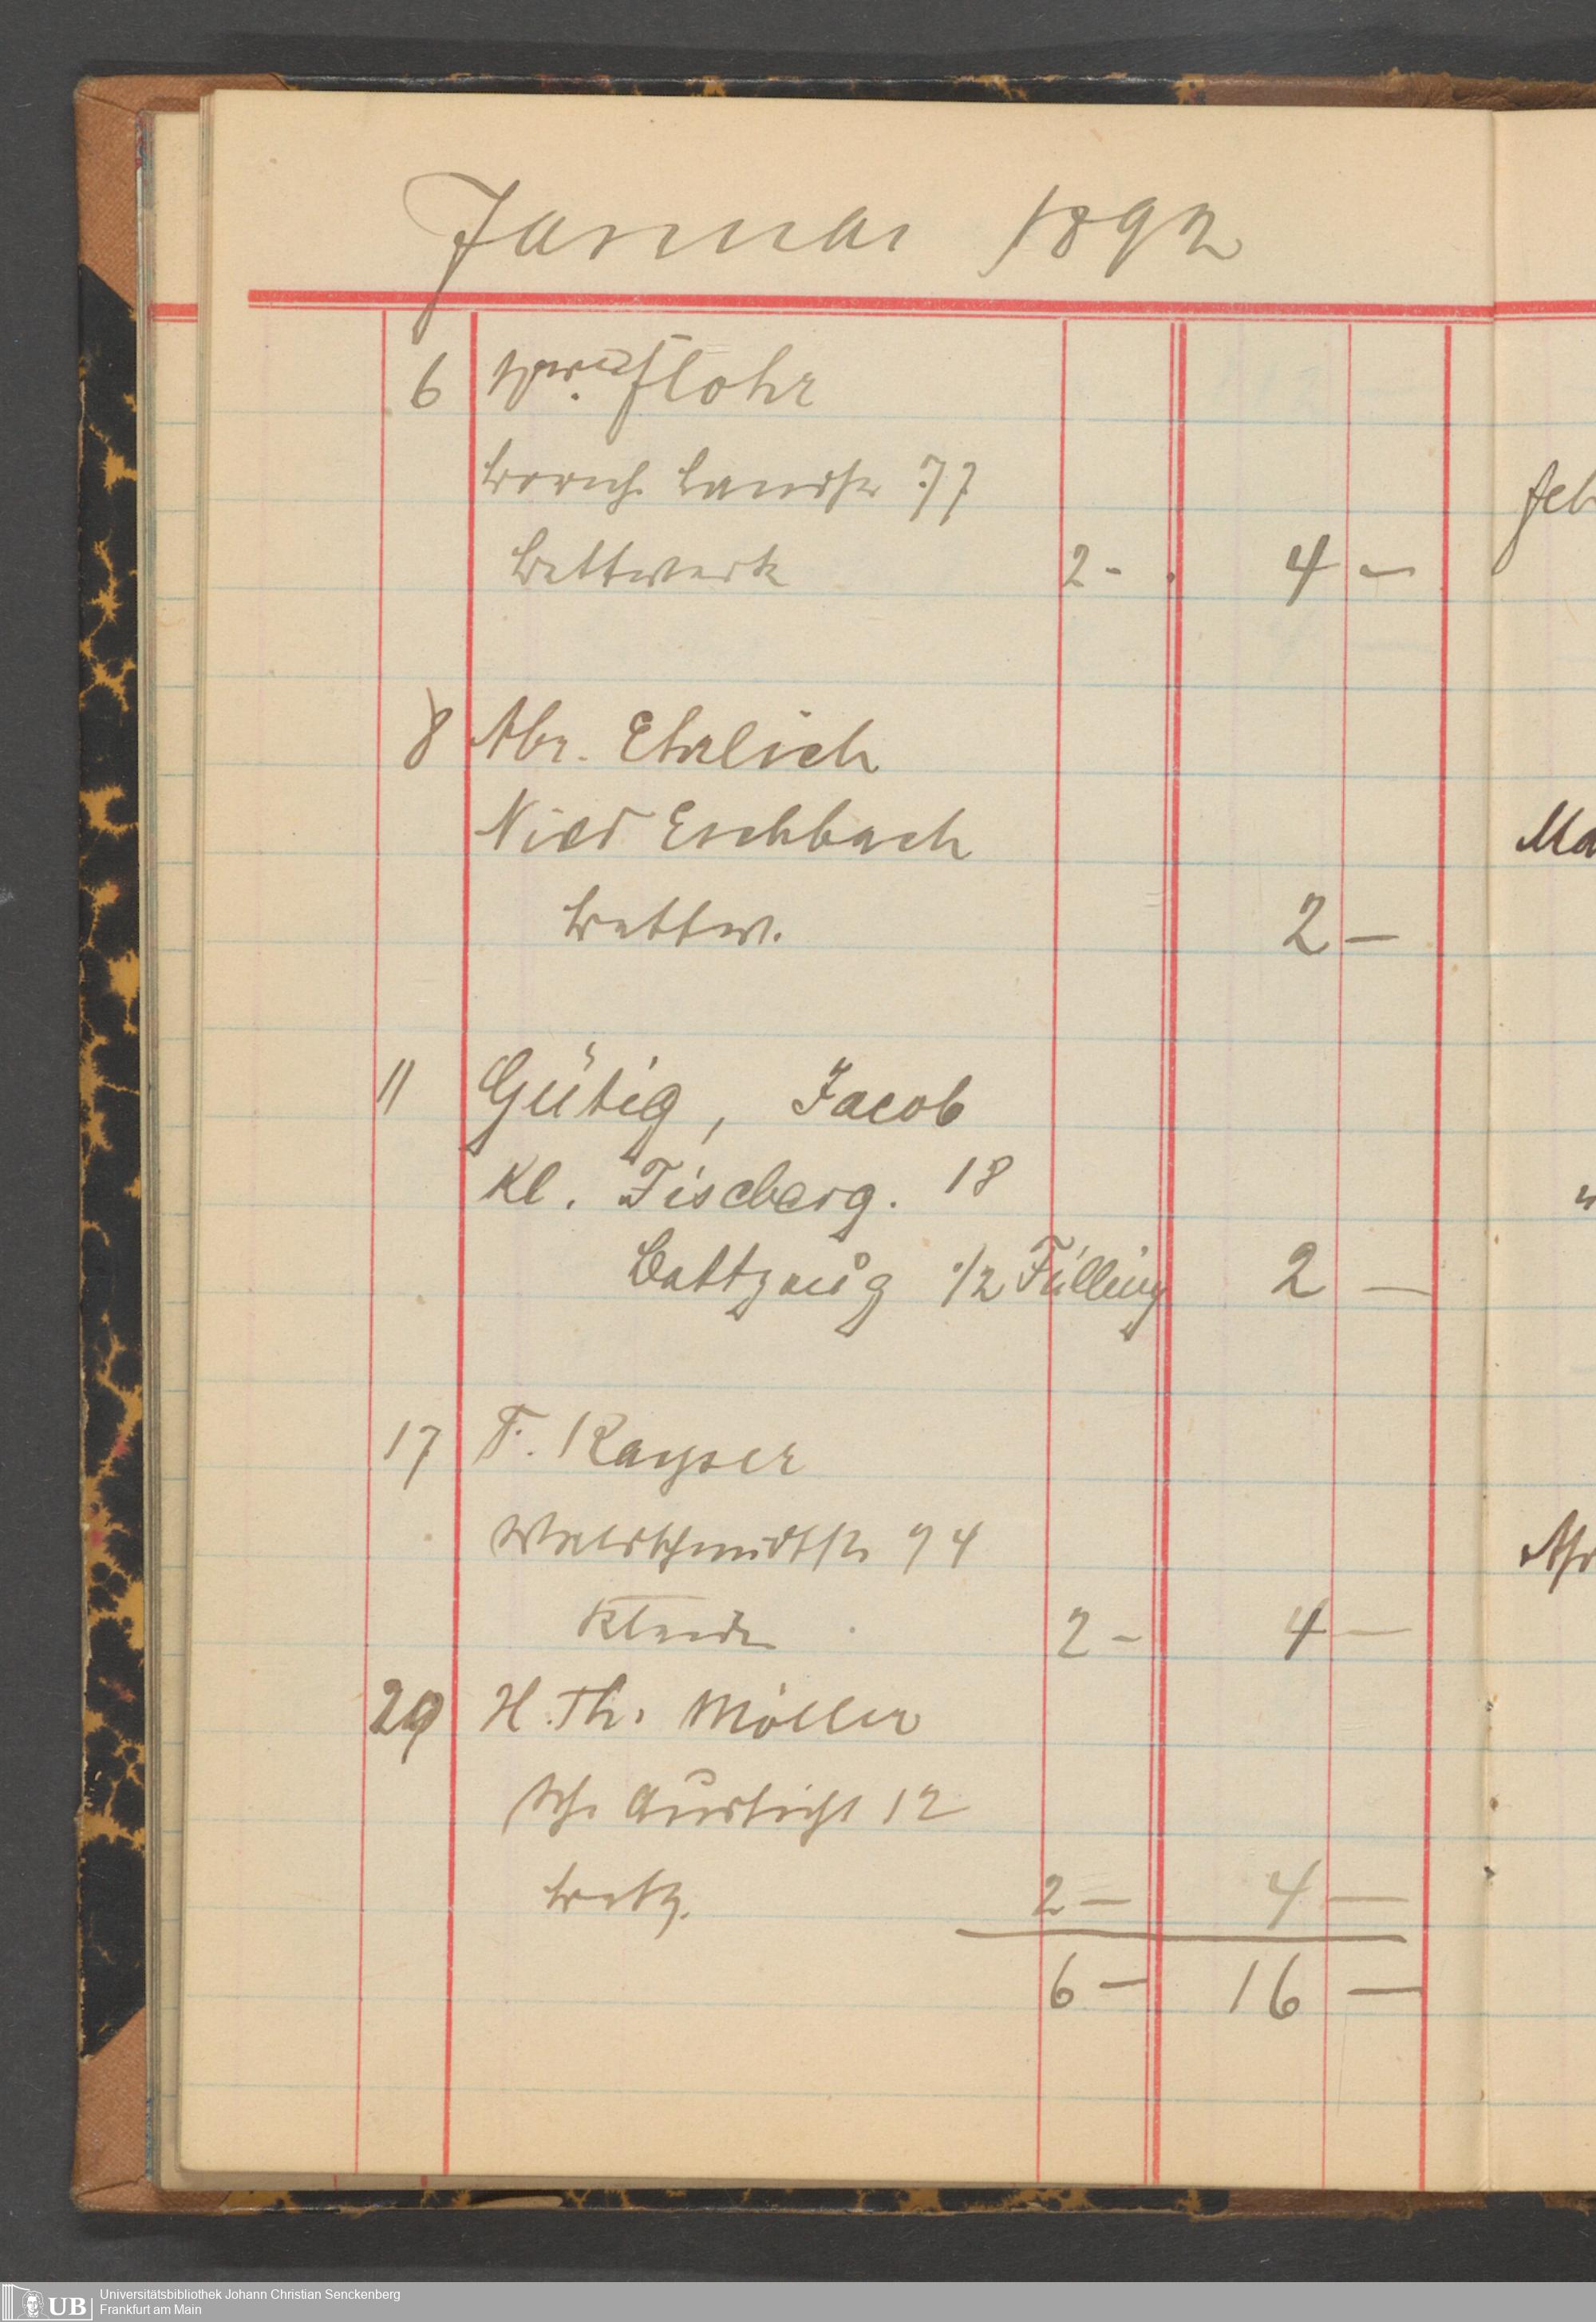 Januar 1892
6 Flohr
Bornh. Landstr 77
Bettwerk 2 - 4 -
8 Abr. Ehrlich
Nied Eschbach
Bettw. 2 -
11 Gütig, Jacob
Kl. Fischerg. 18
Bettzeug 1/2 Füllung 2 -
17 F. Kayser
Waldschmidtstr 94
Kleider 2 - 4 -
29 H. Th. Möller
Sch. Aussicht 12
Bettz. 2 - 4 -
6 - 16 -
feb
Ma
Universitätsbibliothek Johann Christian Senckenberg
UB Frankfurt am Main